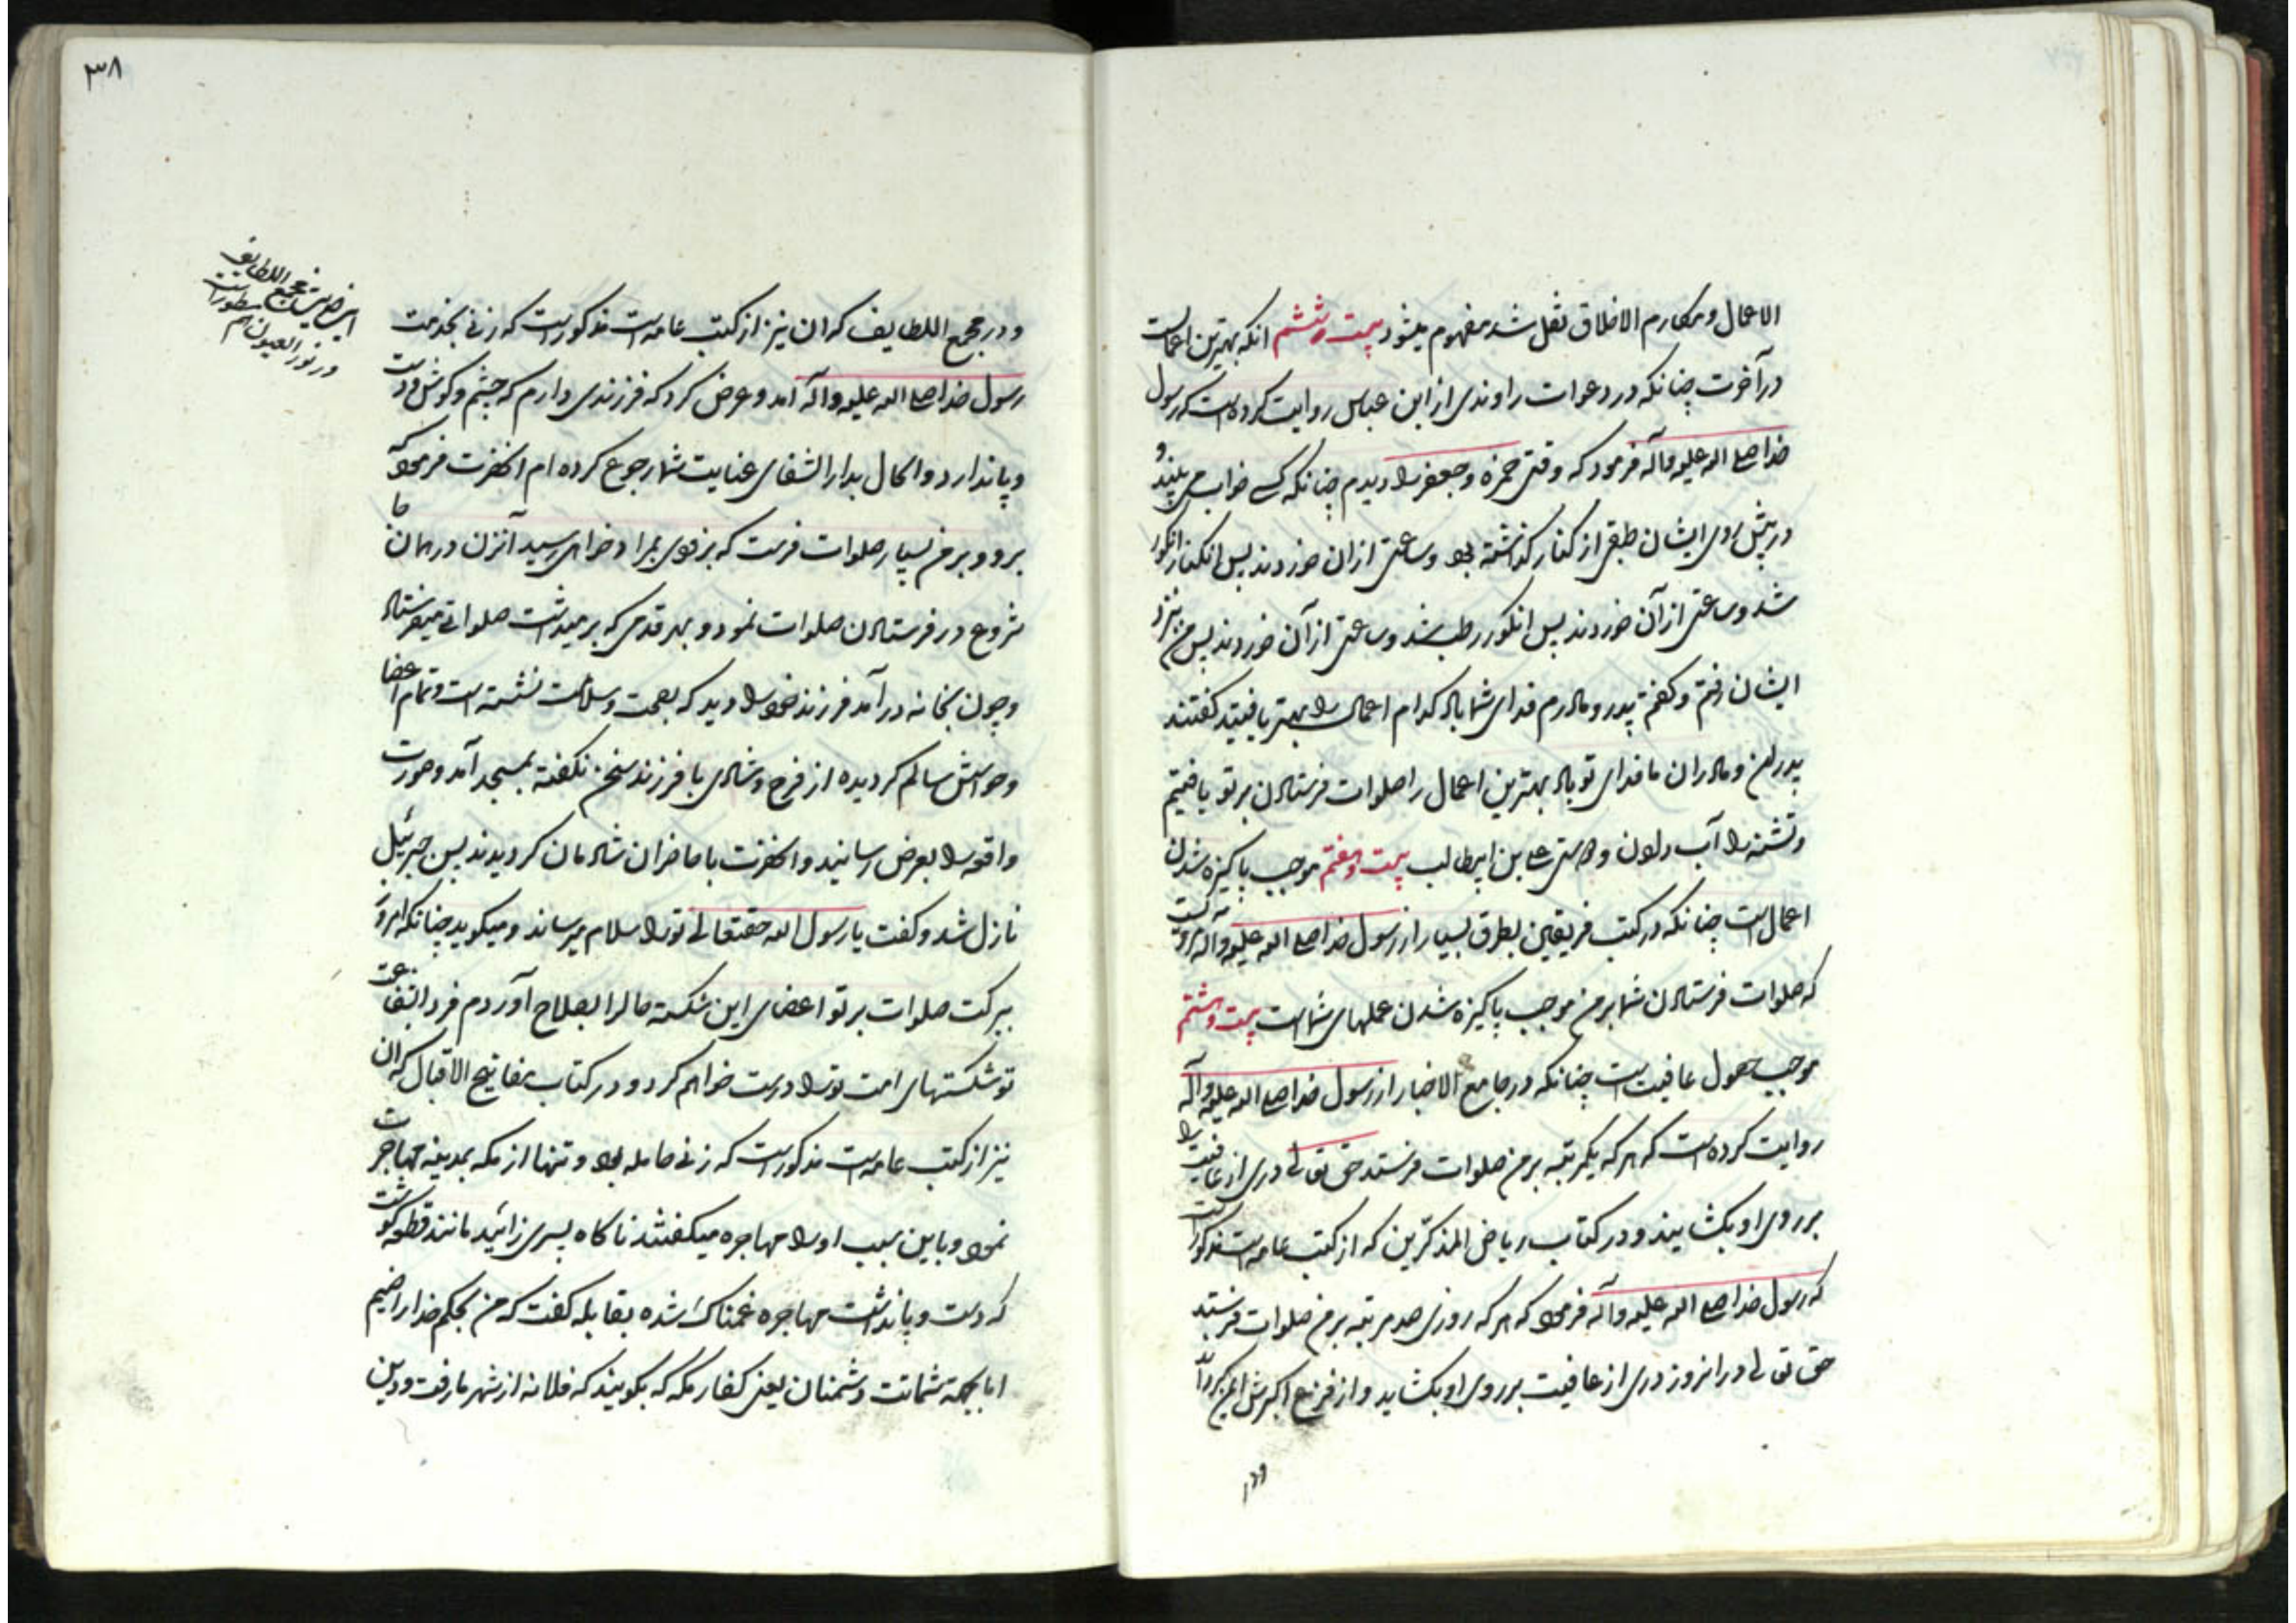 الاعمال و مکارم الاخلاق نقل شد مفهوم میشود بیست و ششم انکه بهترین اعمالست
در آخرت چنانکه در دعوات راوندی از ابن عباس روایت کرده است که رسول
خدا صلی الله علیه وآله فرمود که وقتی حمزه و جعفر را دیدم چنانکه کسی خواب می بیند و
در پیش روی ایشان طبقی از کنار کذاشته بود و ساعتی از ان خوردند پس انکنار انکور
شد و ساعتی از آن خوردند پس انکور رطب شد و ساعتی از آن خوردند پس من بنزد
ایشان رفتم و کفتم پدر و مادرم فدای شما باد کدام اعمال را بهتر یافتید کفتند
پدران و مادران ما فدای تو باد بهترین اعمال را صلوات فرستادن بر تو یافتیم
و تشنه را آب دادن و دوستی علی بن ابیطالب بیست و هفتم موجب پاکیزه شدن
اعمال است چنانکه در کتب فریقین بطرق بسیار از رسول خدا صلی الله علیه وآله مرویست
که صلوات فرستادن شما بر من موجب پاکیزه شدن عملهای شماست بیست و هشتم
موجب حصول عافیت است چنانکه در جامع الاخبار از رسول خدا صلی الله علیه وآله
روایت کرده است که هر که یکمرتبه بر من صلوات فرستد حق تعالی دری از عافیت را
بر روی او بکشایند و در کتاب ریاض المذکرین که از کتب عامه است مذکور است
که رسول خدا صلی الله علیه وآله فرمود که هر که روزی صد مرتبه بر من صلوات فرستد
حق تعالی در انروز دری از عافیت بر روی او بکشاید و از فزع اکبرش ایمن کرداند
و در
۳۸
و در مجمع اللطایف که ان نیز از کتب عامه است مذکور است که زنی بخدمت
رسول خدا صلی الله علیه وآله آمد و عرض کرد که فرزندی دارم که چشم و کوش و دست
و پا ندارد و الحال بدار الشفای عنایت شما رجوع کرده ام انحضرت فرمود که
برو و بر من بسیار صلوات فرست که بزودی بمراد خواهی رسید آنزن در همان جا
شروع در فرستادن صلوات نمود و بهر قدمی که بر میداشت صلواتی میفرستاد
و چون بخانه در آمد فرزند خود را دید که بصحت و سلامت نشسته است و تمام اعضا
و حواسش سالم کردیده از فرح و شادی با فرزند سخن نکفته بمسجد آمد و صورت
واقعه را بعرض رسانید و انحضرت با حاضران شادمان کردیدند پس جبرئیل
نازل شد و کفت یا رسول الله حقتعالی تو را سلام میرساند و میکوید چنانکه امروز
ببرکت صلوات بر تو اعضای این شکسته حال را بصلاح آوردم فردا بشفاعت
تو شکستهای امت تو را درست خواهم کرد و در کتاب مفاتیح الاقبال که ان
نیز از کتب عامه است مذکور است که زنی حامله بود و تنها از مکه بمدینه مهاجرت
نمود و باین سبب او را مهاجره میکفتند ناکاه پسری زائید مانند قطعه کوشت
که دست و پا نداشت مهاجره غمناک شده بقابله کفت که من بحکم خدا راضیم
اما بجهة شماتت دشمنان یعنی کفار مکه که بکویند که فلانه از شهر ما رفت و دین
مجمع اللطایف
در نور العیون هم